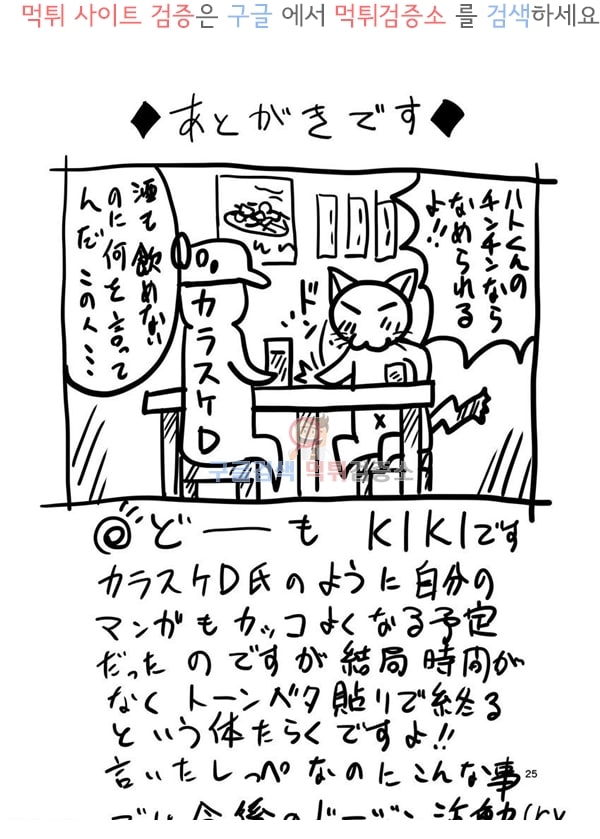 먹튀 사이트 검증은 구글 에서 먹튀검증소 를 검색하세요
◆あとがきです◆
ハトくんの
チンチンなら
なめられる
よ!!
酒も飲めない
のに何を言って
んだ この人…
ドン
カラスケD
구글검색 먹튀검증소
どーも KIKIです
カラスケD氏のように自分の
マンガもカッコよくなる予定
だったのですが結局時間が
なくトーンベタ貼りで終る
という体たらくですよ!!
言いたしっぺなのにこんな事
25